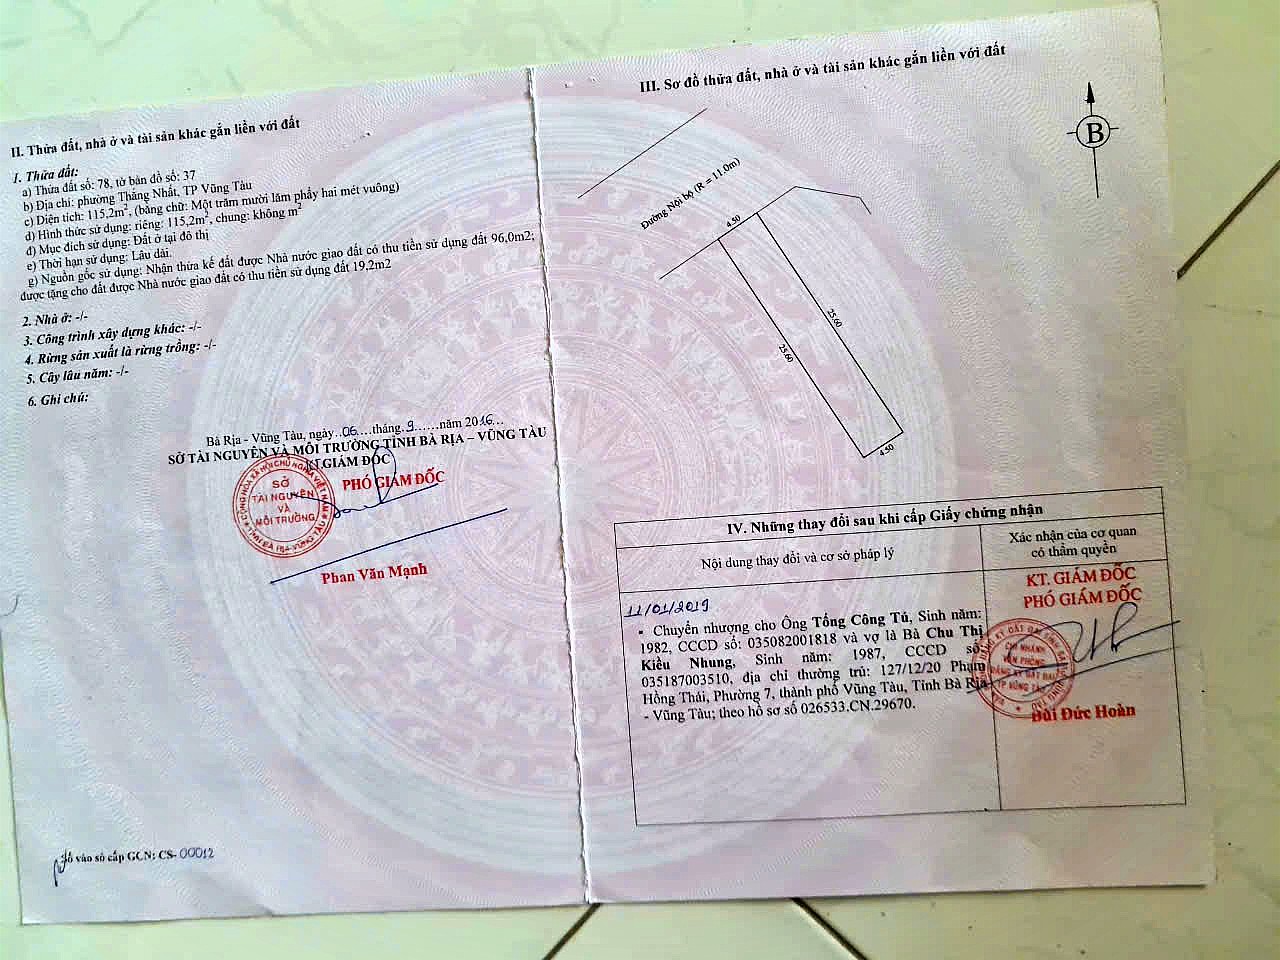 II. Thửa đất, nhà ở và tài sản khác gắn liền với đất
1. Thửa đất:
a) Thửa đất số: 78, tờ bản đồ số: 37
b) Địa chỉ: phường Thắng Nhất, TP Vũng Tàu
c) Diện tích: 115,2m², (bằng chữ: Một trăm mười lăm phẩy hai mét vuông)
d) Hình thức sử dụng: riêng: 115,2m², chung: không m²
đ) Mục đích sử dụng: Đất ở tại đô thị
e) Thời hạn sử dụng: Lâu dài.
g) Nguồn gốc sử dụng: Nhận thừa kế đất được Nhà nước giao đất có thu tiền sử dụng đất 96,0m2;
được tặng cho đất được Nhà nước giao đất có thu tiền sử dụng đất 19,2m2
2. Nhà ở: -/-
3. Công trình xây dựng khác: -/-
4. Rừng sản xuất là rừng trồng: -/-
5. Cây lâu năm: -/-
6. Ghi chú:
Bà Rịa - Vũng Tàu, ngày..06....tháng..9......năm 2016...
SỞ TÀI NGUYÊN VÀ MÔI TRƯỜNG TỈNH BÀ RỊA – VŨNG TÀU
KT.GIÁM ĐỐC
PHÓ GIÁM ĐỐC
CỘNG HÒA XÃ HỘI CHỦ NGHĨA VIỆT NAM
SỞ
TÀI NGUYÊN
VÀ
MÔI TRƯỜNG
TỈNH BÀ RỊA-VŨNG TÀU
Phan Văn Mạnh
Số vào sổ cấp GCN: CS-00012
III. Sơ đồ thửa đất, nhà ở và tài sản khác gắn liền với đất
B
Đường Nội bộ (R = 11.0m)
4.50
25.60
25.60
4.50
IV. Những thay đổi sau khi cấp Giấy chứng nhận
Nội dung thay đổi và cơ sở pháp lý
Xác nhận của cơ quan
có thẩm quyền
11/01/2019
- Chuyển nhượng cho Ông Tống Công Tú, Sinh năm:
1982, CCCD số: 035082001818 và vợ là Bà Chu Thị
Kiều Nhung, Sinh năm: 1987, CCCD số:
035187003510, địa chỉ thường trú: 127/12/20 Phạm
Hồng Thái, Phường 7, thành phố Vũng Tàu, Tỉnh Bà Rịa
- Vũng Tàu; theo hồ sơ số 026533.CN.29670.
KT. GIÁM ĐỐC
PHÓ GIÁM ĐỐC
CHI NHÁNH
VĂN PHÒNG
ĐĂNG KÝ ĐẤT ĐAI
TP VŨNG TÀU
Bùi Đức Hoàn